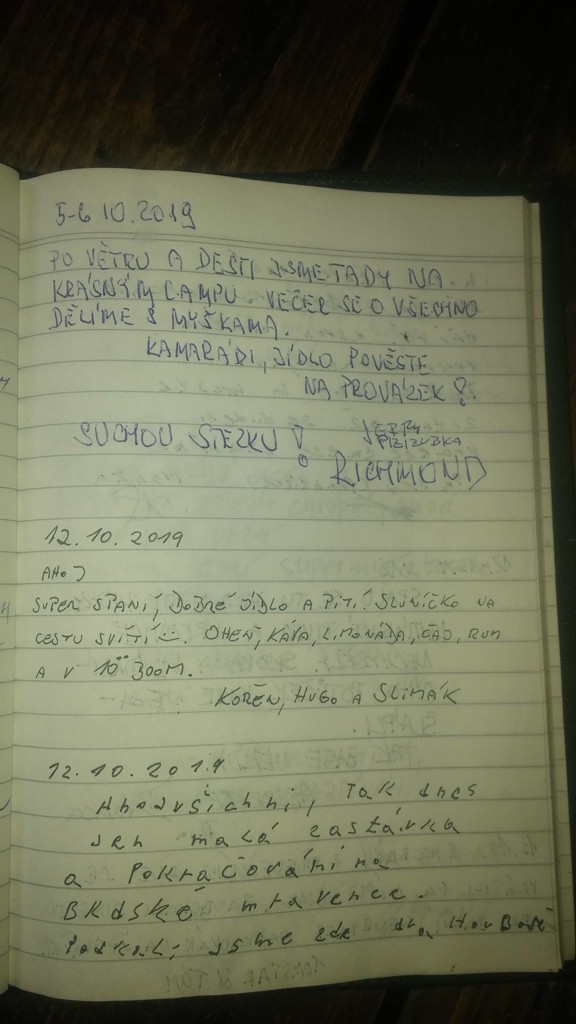 5-6.10.2019
PO VĚTRU A DEŠTI JSME TADY NA
KRÁSNÝM CAMPU. VEČER SE O VŠECHNO
DĚLÍME S MYŠKAMA.
KAMARÁDI, JÍDLO POVĚSTE
NA PROVÁZEK!
SUCHOU STEZKU!
JERRY
RICHMOND
12.10.2019
AHOJ
SUPER SPANÍ, DOBRÉ JÍDLO A PITÍ. SLUNÍČKO NA
CESTU SVÍTÍ. OHEŇ, KÁVA, LIMONÁDA, ČAJ, RUM
A V 10 300M.
KOŘEN, HUGO A SLIMÁK
12.10.2019
Ahoj všichni, Tak dnes
Jen malá zastávka
a Pokračování na
BRdské mravence.
Potkali jsme zde dva HouBaře